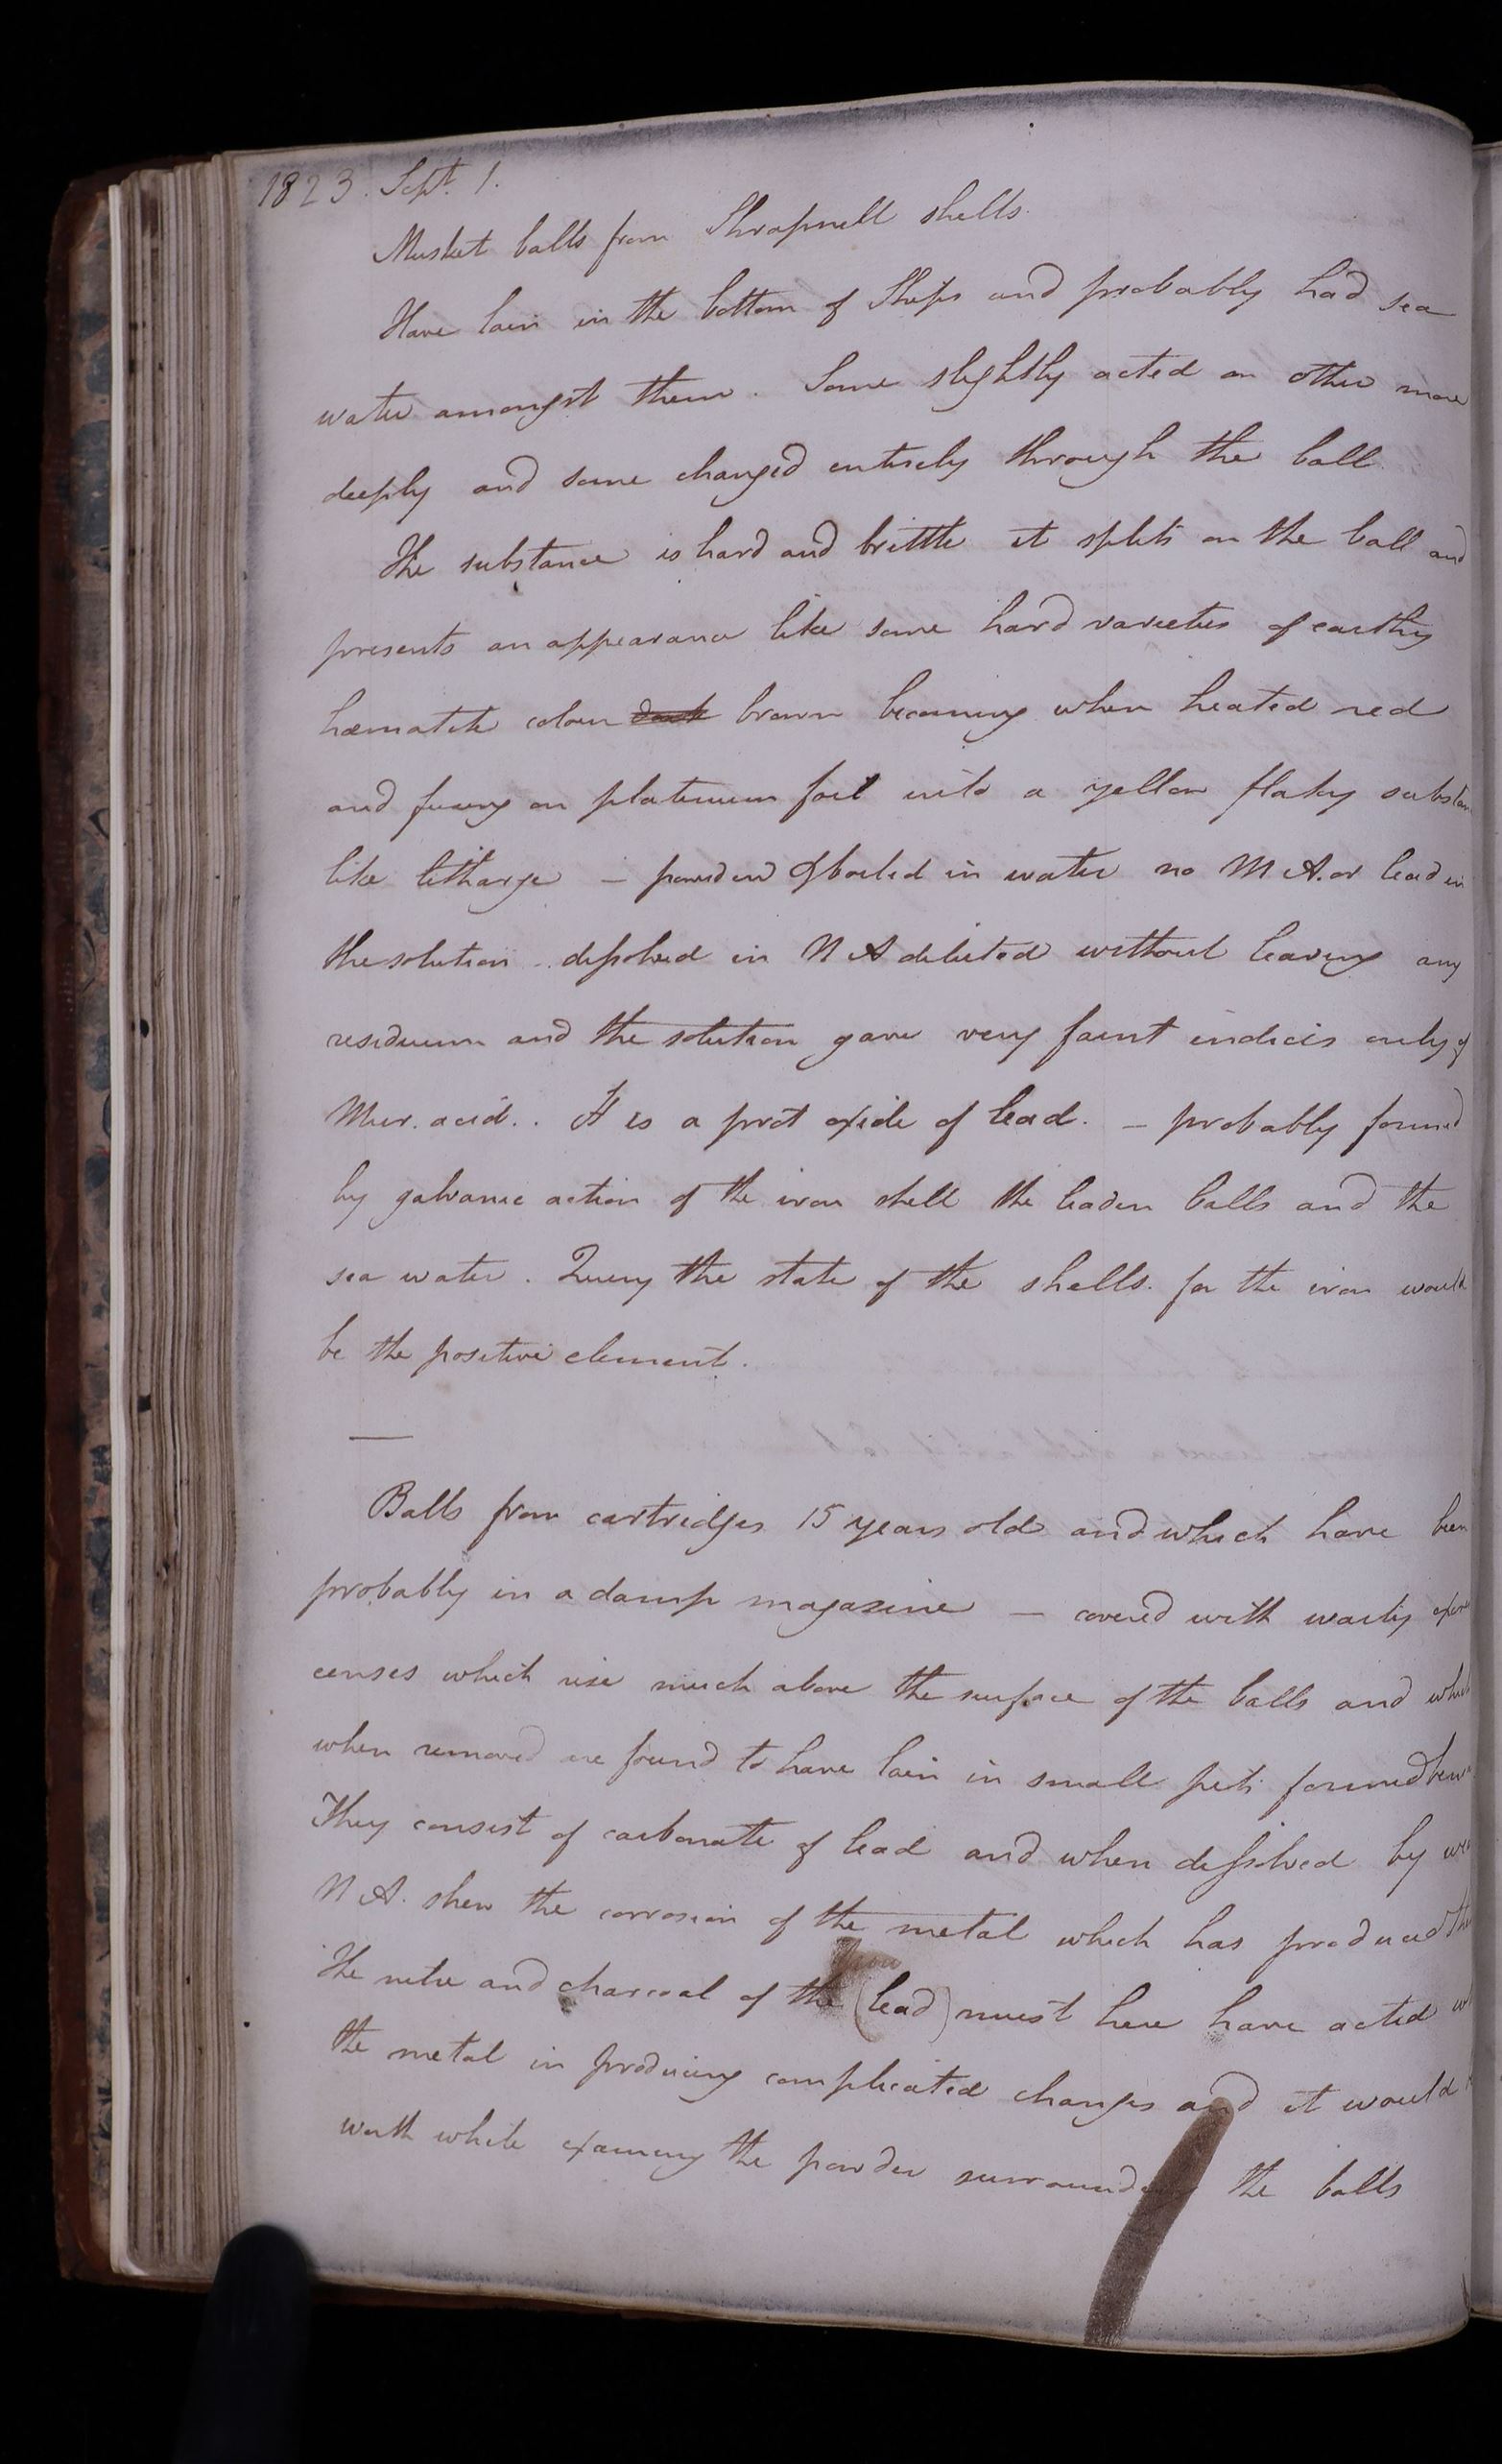 1823. Sept. 1.
Musket balls from Shrapnell shells.
Have lain in the bottom of Ships and probably had sea
water amongst them. Some slightly acted on other more
deeply and some changed entirely through the ball.
The substance is hard and brittle it splits on the ball and
presents an appearance like some hard varieties of earthy
hæmatite colour dark brown becoming when heated red
and fusing on platinum foil into a yellow flaky substan
like litharge – powdered & boiled in water no M A. or lead in
the solution. dissolved in N A diluted without leaving any
residuum and the solution gave very faint indicis only of
Mur. acid.. It is a prot oxide of lead. – probably formed
by galvanic action of the iron shell the leaden balls and the
sea water. Query the state of the shells. for the iron would
be the positive element.
Balls from cartridges 15 years old and which have been
probably in a damp magazine – covered with warty excres
censes which rise much above the surface of the balls and which
when removed are found to have lain in small pits formed
They consist of carbonate of lead and when dissolved by
N A. shew the corrosion of the metal which has produced
The nitre and charcoal of the (lead) must here have acted
the metal in producing complicated changes and it would
worth while examing the powder surrounding the balls